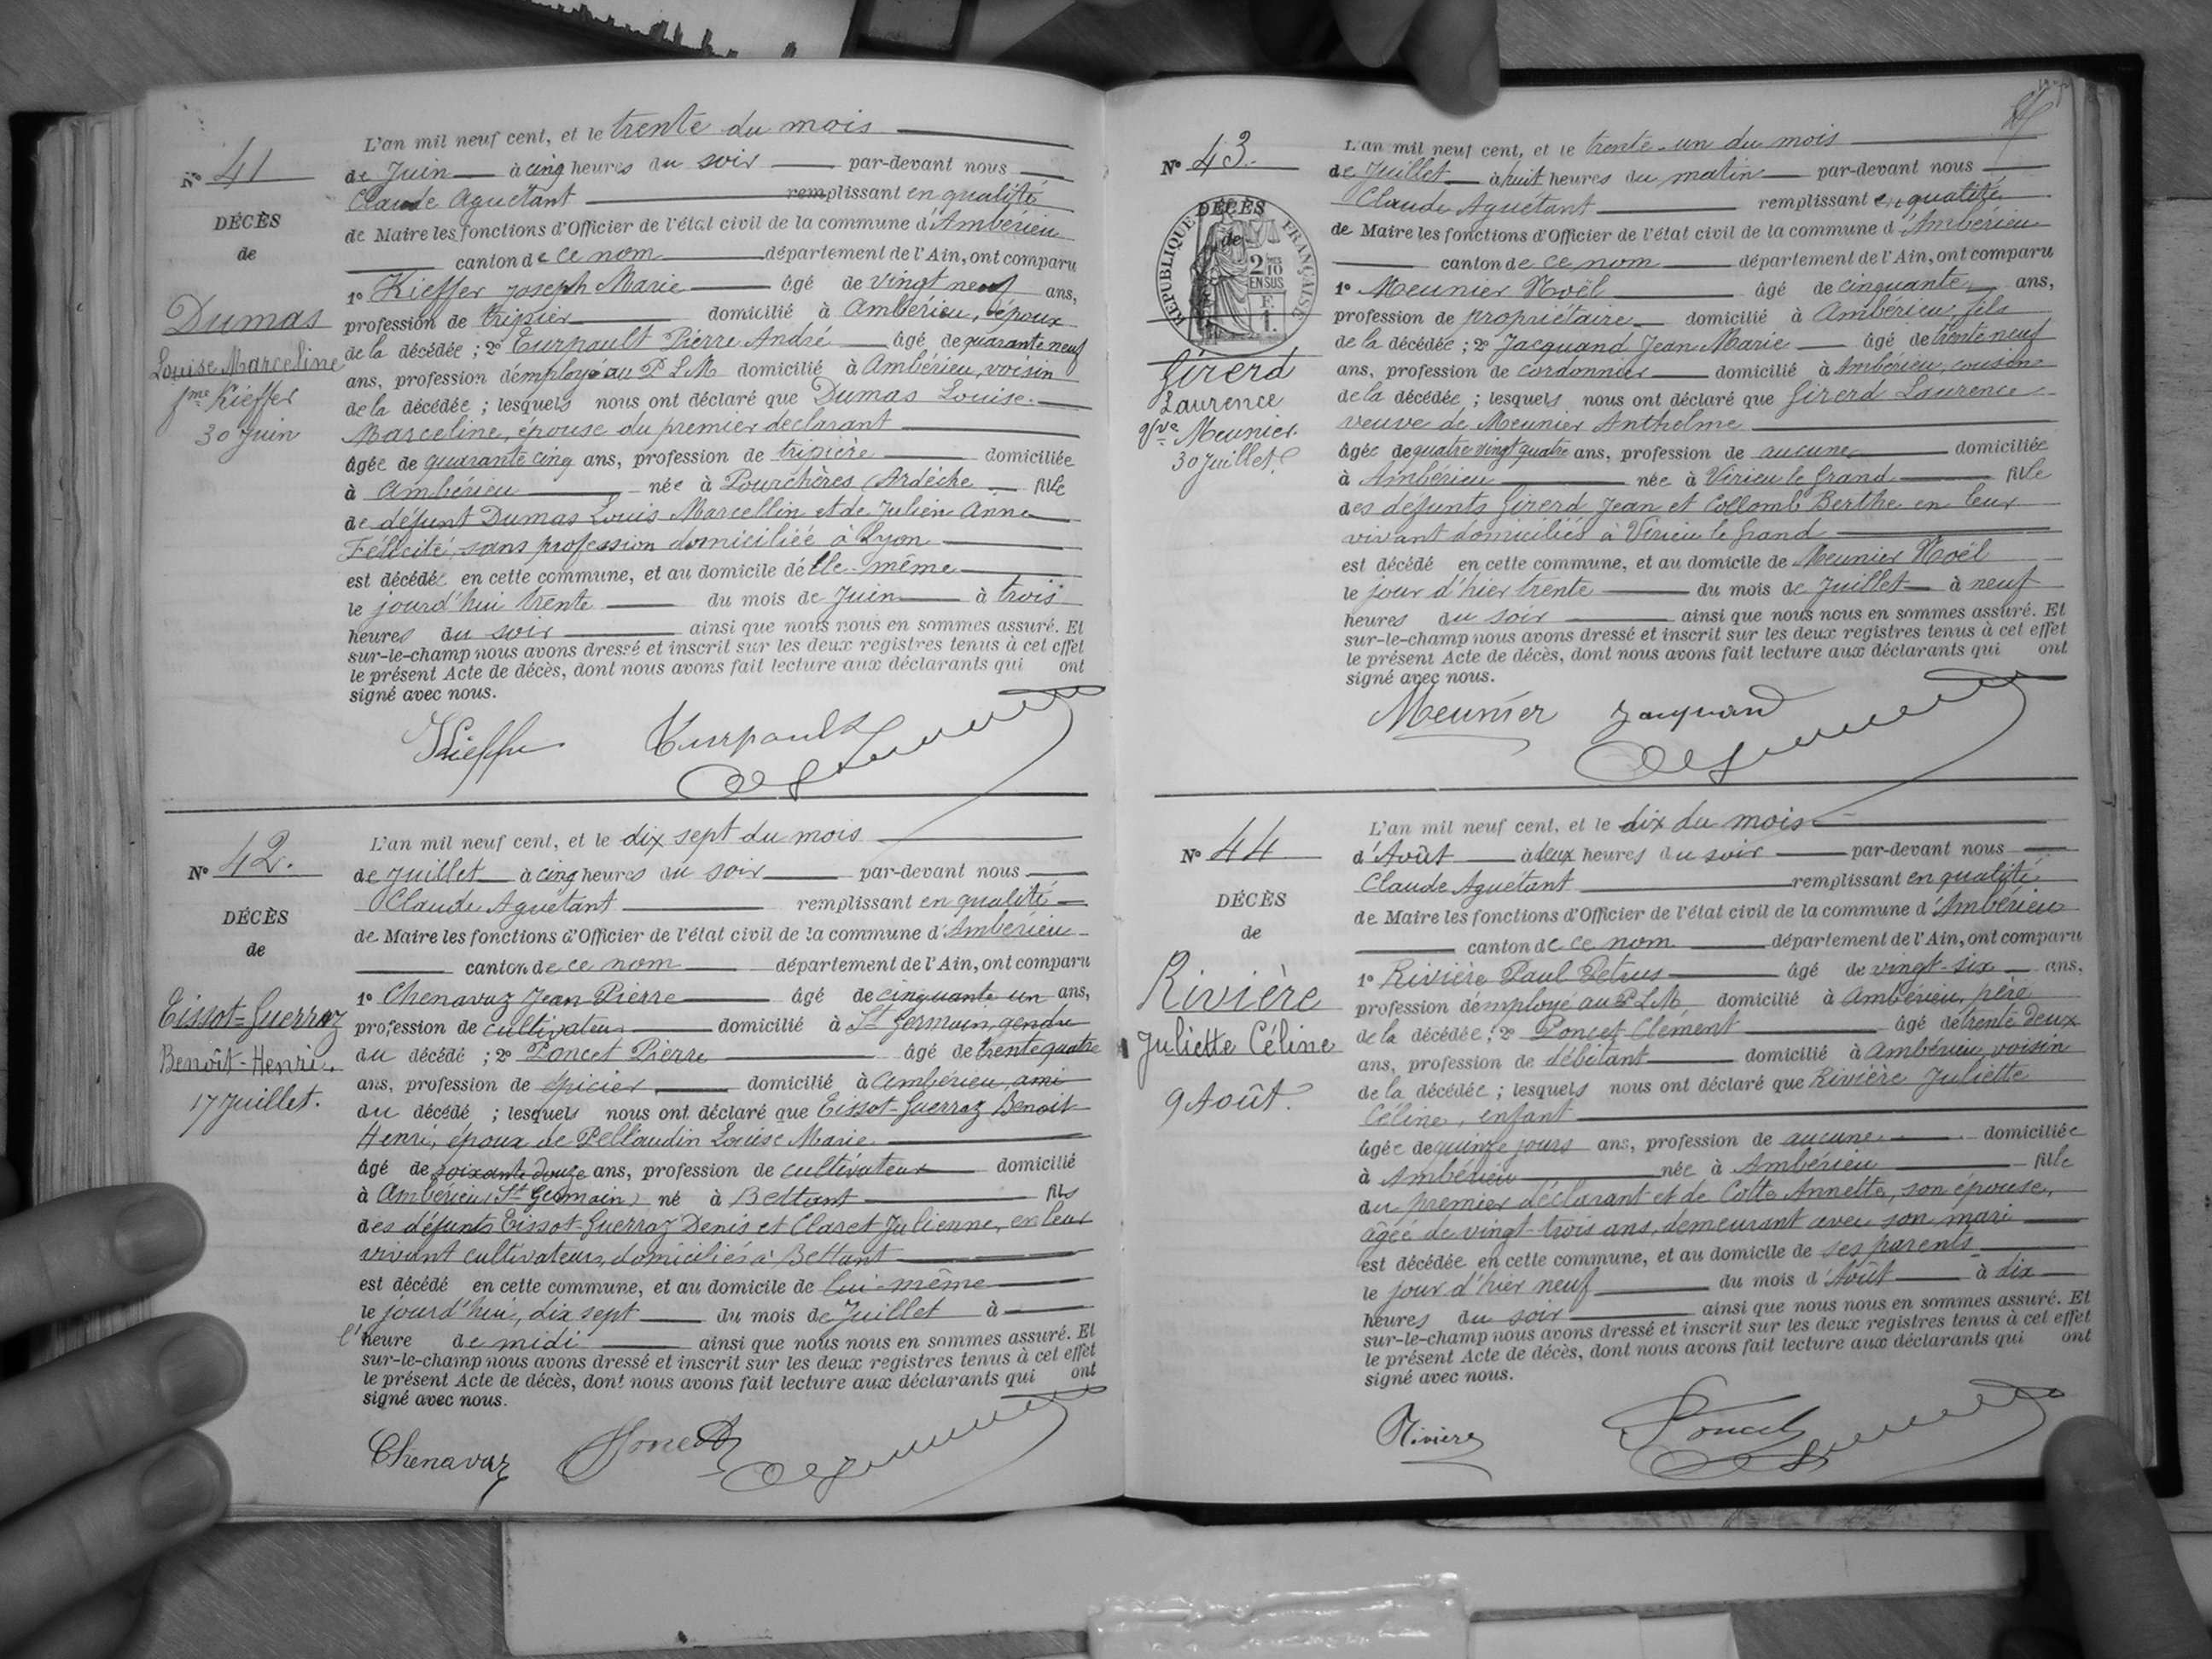 N° 41
DÉCÈS
de
Dumas
Louise Marceline
fme Kieffer
30 Juin
L'an mil neuf cent, et le trente du mois
de Juin à cinq heures du soir par-devant nous
Claude Aguétant remplissant en qualité
de Maire les fonctions d'Officier de l'état civil de la commune d'Ambérieu
canton de ce nom département de l'Ain, ont comparu
1° Kieffer Joseph Marie âgé de vingt neuf ans,
profession de tripier domicilié à Ambérieu, époux
de la décédée ; 2° Turpault Pierre André âgé de quarante neuf
ans, profession d'employé au P L M domicilié à Ambérieu, voisin
de la décédée ; lesquels nous ont déclaré que Dumas Louise
Marceline, épouse du premier declarant
âgée de quarante cinq ans, profession de tripière domiciliée
à Ambérieu née à Pourchères (Ardèche fille
de défunt Dumas Louis Marcellin et de Julien Anne
Félicité, sans profession domiciliée à Lyon
est décédée en cette commune, et au domicile d'elle-même
le jourd'hui trente du mois de Juin à trois
heures du soir ainsi que nous nous en sommes assuré. Et
sur-le-champ nous avons dressé et inscrit sur les deux registres tenus à cet effet
le présent Acte de décès, dont nous avons fait lecture aux déclarants qui ont
signé avec nous.
Kieffer Turpault
N° 42.
DÉCÈS
de
Tissot-Guerraz
Benoît-Henri.
17 Juillet.
L'an mil neuf cent, et le dix sept du mois
de Juillet à cinq heures du soir par-devant nous
Claude Aguétant remplissant en qualité
de Maire les fonctions d'Officier de l'état civil de la commune d'Ambérieu
canton de ce nom département de l'Ain, ont comparu
1° Chenavaz Jean Pierre âgé de cinquante un ans,
profession de cultivateur domicilié à St Germain, gendre
du décédé ; 2° Poncet Pierre âgé de trente quatre
ans, profession de épicier domicilié à Ambérieu, ami
du décédé ; lesquels nous ont déclaré que Tissot-Guerraz Benoit
Henri, époux de Pellaudin Louise Marie
âgé de soixante douze ans, profession de cultivateur domicilié
à Ambérieu (St Germain) né à Bettant fils
des défunts Tissot-Guerraz Denis et Claret Julienne, en leur
vivant cultivateurs, domiciliés à Bettant
est décédé en cette commune, et au domicile de lui-même
le jourd'hui, dix sept du mois de Juillet à
l'heure de midi ainsi que nous nous en sommes assuré. Et
sur-le-champ nous avons dressé et inscrit sur les deux registres tenus à cet effet
le présent Acte de décès, dont nous avons fait lecture aux déclarants qui ont
signé avec nous.
Chenavaz Poncet
N° 43.
DÉCÈS
de
RÉPUBLIQUE FRANÇAISE
2 10
EN SUS
Girerd
Laurence
Vve Meunier
30 Juillet
L'an mil neuf cent, et le trente-un du mois
de Juillet à huit heures du matin par-devant nous
Claude Aguétant remplissant en qualité
de Maire les fonctions d'Officier de l'état civil de la commune d'Ambérieu
canton de ce nom département de l'Ain, ont comparu
1° Meunier Noël âgé de cinquante ans,
profession de propriétaire domicilié à Ambérieu, fils
de la décédée ; 2° Jacquand Jean Marie âgé de trente neuf
ans, profession de cordonnier domicilié à Ambérieu, cousin
de la décédée ; lesquels nous ont déclaré que Girerd Laurence
veuve de Meunier Anthelme
âgée de quatre vingt quatre ans, profession de aucune domiciliée
à Ambérieu née à Virieu le Grand fille
des défunts Girerd Jean et Collomb Berthe en leur
vivant domiciliés à Virieu le Grand
est décédé en cette commune, et au domicile de Meunier Noël
le jour d'hier trente du mois de Juillet à neuf
heures du soir ainsi que nous nous en sommes assuré. Et
sur-le-champ nous avons dressé et inscrit sur les deux registres tenus à cet effet
le présent Acte de décès, dont nous avons fait lecture aux déclarants qui ont
signé avec nous.
Meunier Jacquand
N° 44
DÉCÈS
de
Rivière
Juliette Céline
9 Août.
L'an mil neuf cent, et le dix du mois
d'Août à deux heures du soir par-devant nous
Claude Aguétant remplissant en qualité
de Maire les fonctions d'Officier de l'état civil de la commune d'Ambérieu
canton de ce nom département de l'Ain, ont comparu
1° Rivière Paul Petrus âgé de vingt-six ans,
profession d'employé au P L M domicilié à Ambérieu, père
de la décédée ; 2° Poncet Clément âgé de trente deux
ans, profession de débitant domicilié à Ambérieu, voisin
de la décédée ; lesquels nous ont déclaré que Rivière Juliette
Céline, enfant
âgée de quinze jours ans, profession de aucune domiciliée
à Ambérieu née à Ambérieu fille
du premier déclarant et de Cotte Annette, son épouse,
âgée de vingt-trois ans, demeurant avec son mari
est décédée en cette commune, et au domicile de ses parents
le jour d'hier neuf du mois d'Août à dix
heures du soir ainsi que nous nous en sommes assuré. Et
sur-le-champ nous avons dressé et inscrit sur les deux registres tenus à cet effet
le présent Acte de décès, dont nous avons fait lecture aux déclarants qui ont
signé avec nous.
Rivière Poncet